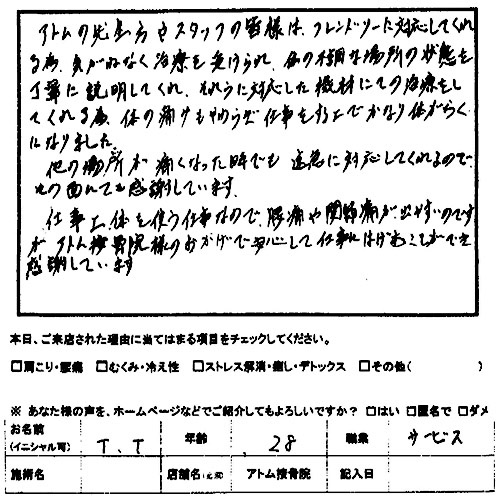 アトムの先生方やスタッフの皆様は、フレンドリーに対応してくれ
る為、気がねなく治療を受けられ、各の不調な場所の状態を
丁寧に説明してくれ、それらに対応した機材にての治療をし
てくれる為、体の痛みもやわらぎ仕事をする上でかなり体がらく
になりました。
他の場所が痛くなった時でも、迅速に対応してくれるので、
その面にても感謝しています。
仕事上、体を使う仕事なので、腰痛や関節痛が出やすいのです
がアトム接骨院様のおかげで安心して仕事にはげむことができ
感謝しています
本日、ご来店された理由に当てはまる項目をチェックしてください。
□肩こり・腰痛 □むくみ・冷え性 □ストレス解消・癒し・デトックス □その他( )
※ あなた様の声を、ホームページなどでご紹介してもよろしいですか? □はい □匿名で □ダメ
お名前 (イニシャル可) T.T 年齢 28 職業 サービス
施術名 店舗名(元町) アトム接骨院 記入日